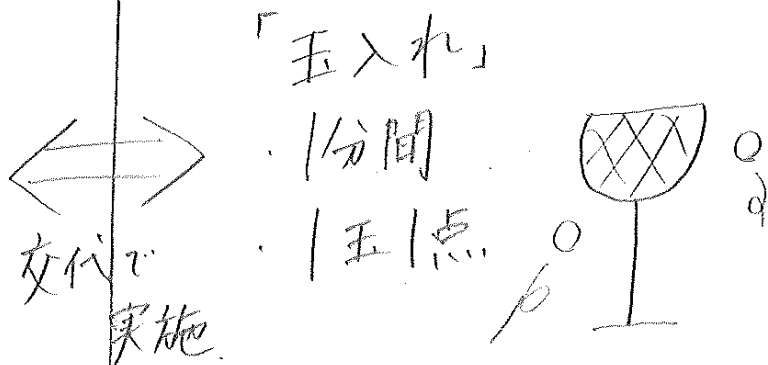 「玉入れ」
・1分間
・1玉1点
交代で
実施.